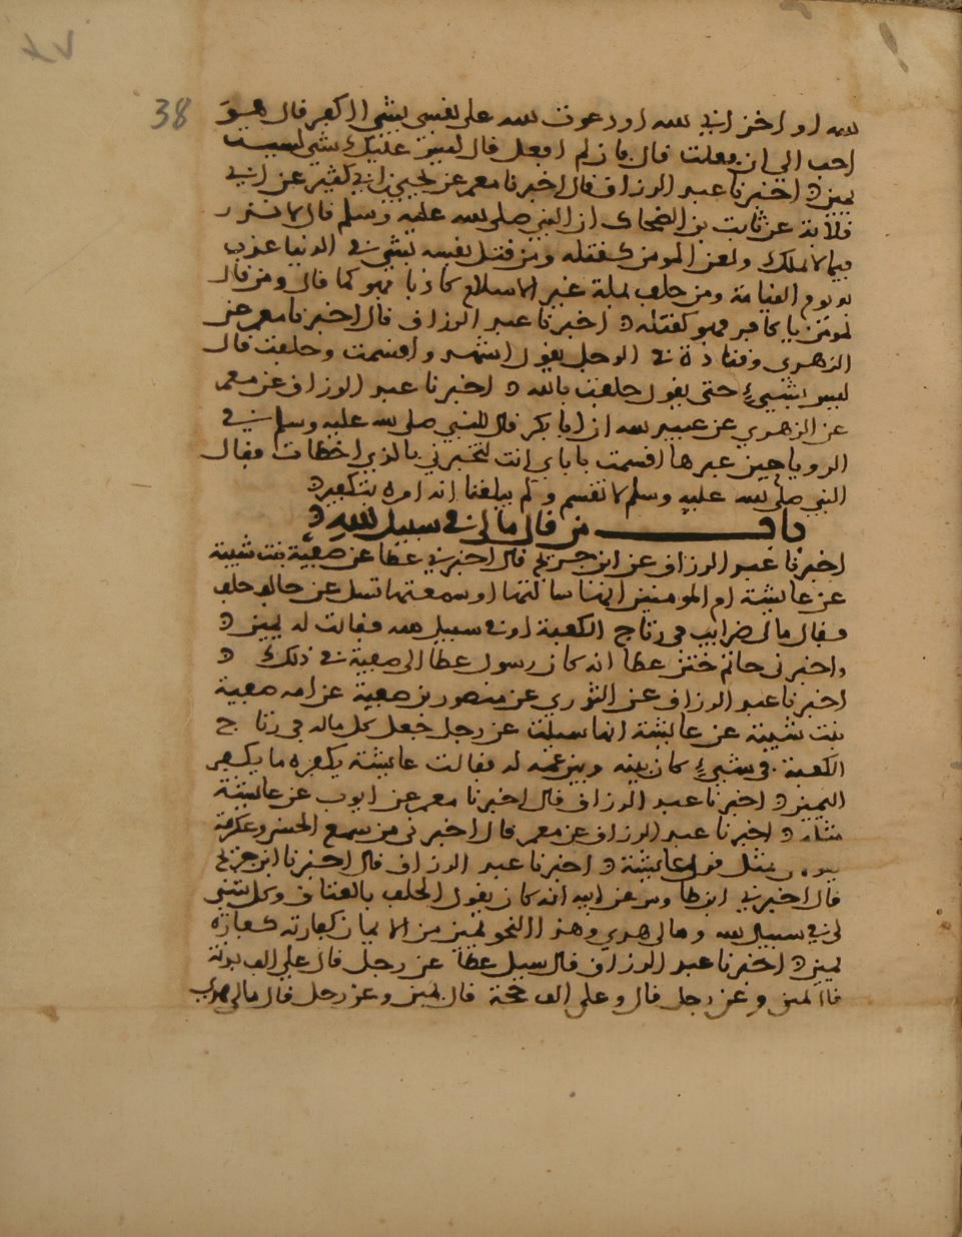 38
الله او اخزاني الله او دعوت الله على نفسي بشي الا كفر قال هو
احب الي ان فعلت قال فان لم افعل قال ليس عليك شي ليست
يمين اخبرنا عبد الرزاق قال اخبرنا معمر عن يحيى بن ابي كثير عن ابي
قلابة عن ثابت بن الضحاك ان النبي صلى الله عليه وسلم قال لا نذر
فيما لا تملك ولعن المومن كقتله ومن قتل نفسه بشي في الدنيا عذب
به يوم القيامة ومن حلف بملة غير الاسلام كاذبا فهو كما قال ومن قال
لمومن يا كافر فهو كقتله اخبرنا عبد الرزاق قال اخبرنا معمر عن
الزهري وقتادة في الرجل يقول اشهد واقسمت وحلفت قال
ليس بشيء حتى يقول حلفت بالله اخبرنا عبد الرزاق عن معمر
عن الزهري عن عبيد الله ان ابا بكر قال للنبي صلى الله عليه وسلم في
الرويا حين عبرها اقسمت بابي انت لتخبرني بالذي اخطات فقال
النبي صلى الله عليه وسلم لا تقسم ولم يبلغنا انه امره بتكفير
باب من قال مالي في سبيل الله
اخبرنا عبد الرزاق عن ابن جريج قال اخبرني عطا عن صفية بنت شيبة
عن عايشة ام المومنين انها سالتها او سمعتها تسل عن حالف حلف
فقال مالي ضرايب في رتاج الكعبة او في سبيل الله فقالت له يمين
واخبرني حاتم ختن عطا انه كان رسول عطا الى صفية في ذلك
اخبرنا عبد الرزاق عن الثوري عن منصور بن صفية عن امه صفية
بنت شيبة عن عايشة انها سيلت عن رجل جعل كل ماله في رتاج
الكعبة في شيء كان بينه وبين عمة له فقالت عايشة يكفره ما يكفر
اليمين اخبرنا عبد الرزاق قال اخبرنا معمر عن ايوب عن عايشة
مثله اخبرنا عبد الرزاق عن معمر قال اخبرني من سمع الحسن وعكرمة
مثل قول عايشة اخبرنا عبد الرزاق قال اخبرنا ابن جريج
قال اخبرني ابن طاوس عن ابيه انه كان يقول الحلف بالعتاق وكل شي
لي في سبيل الله ومالي هدي وهذا النحو يمين من الايمان كفارته كفارة
يمين اخبرنا عبد الرزاق قال سيل عطا عن رجل قال علي الف بدنة
قال يمين وعن رجل قال وعلي الف حجة قال يمين وعن رجل قال مالي هدي